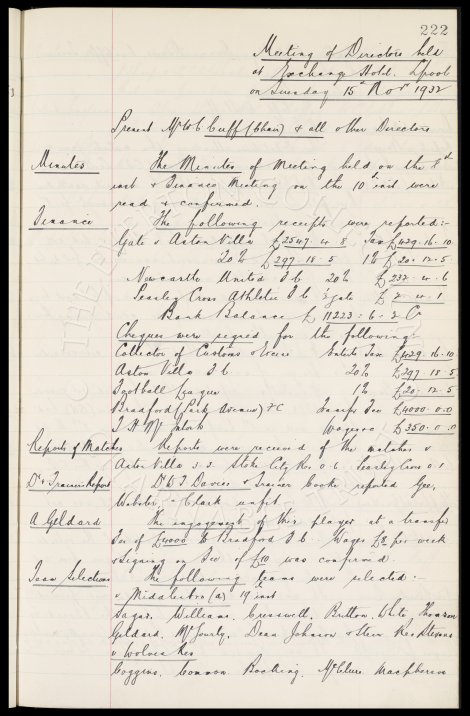 222
Meeting of Directors held
at Exchange Hotel. L'pool
on Tuesday 15th Novr 1932
Present Mr W C Cuff (Chair) & all other Directors
Minutes The Minutes of Meeting held on the 8th
inst & Finance Meeting on the 10th inst were
read & confirmed.
Finance The following receipts were reported:-
Gate v Aston Villa £2547. 4. 8 Tax £429. 16. 10
20% £297. 18. 5 1% £20. 12. 5
Newcastle United F C 20% £232. 4. 6
Cross Athletic F C Gate £ 2. 4. 1
Bank Balance £11223: 6. 2 C
Cheques were signed for the following:-
Collector of Customs & Excise Tax £429. 16. 10
Aston Villa F C 20% £297. 18. 5
Football League 1% £20. 12. 5
Bradford (Park Avenue) F C Transfer Fee £4000. 0. 0
Wages £350. 0. 0
Reports of Matches Reports were received of the matches v
Aston Villa 3. 3. Stoke City Res 0. 6.
Dr & Trainers Report Dr D T Davies & Trainer Cooke reported Gee,
Webster & Clark unfit
A Geldard The engagement of this player at a transfer
Fee of £4000 to Bradford F C. Wages £8 per week
& Signing on Fee of £10 was confirmed.
Team Selections The following teams were selected:-
v Middlesbro (a) 19 inst
Sagar, Williams, Cresswell, Britton, White, Thomson
Geldard, Dean, Johnson & Stein Res Stevens
v Wolves Res
Coggins. Common. Bocking. McClure. Macpherson